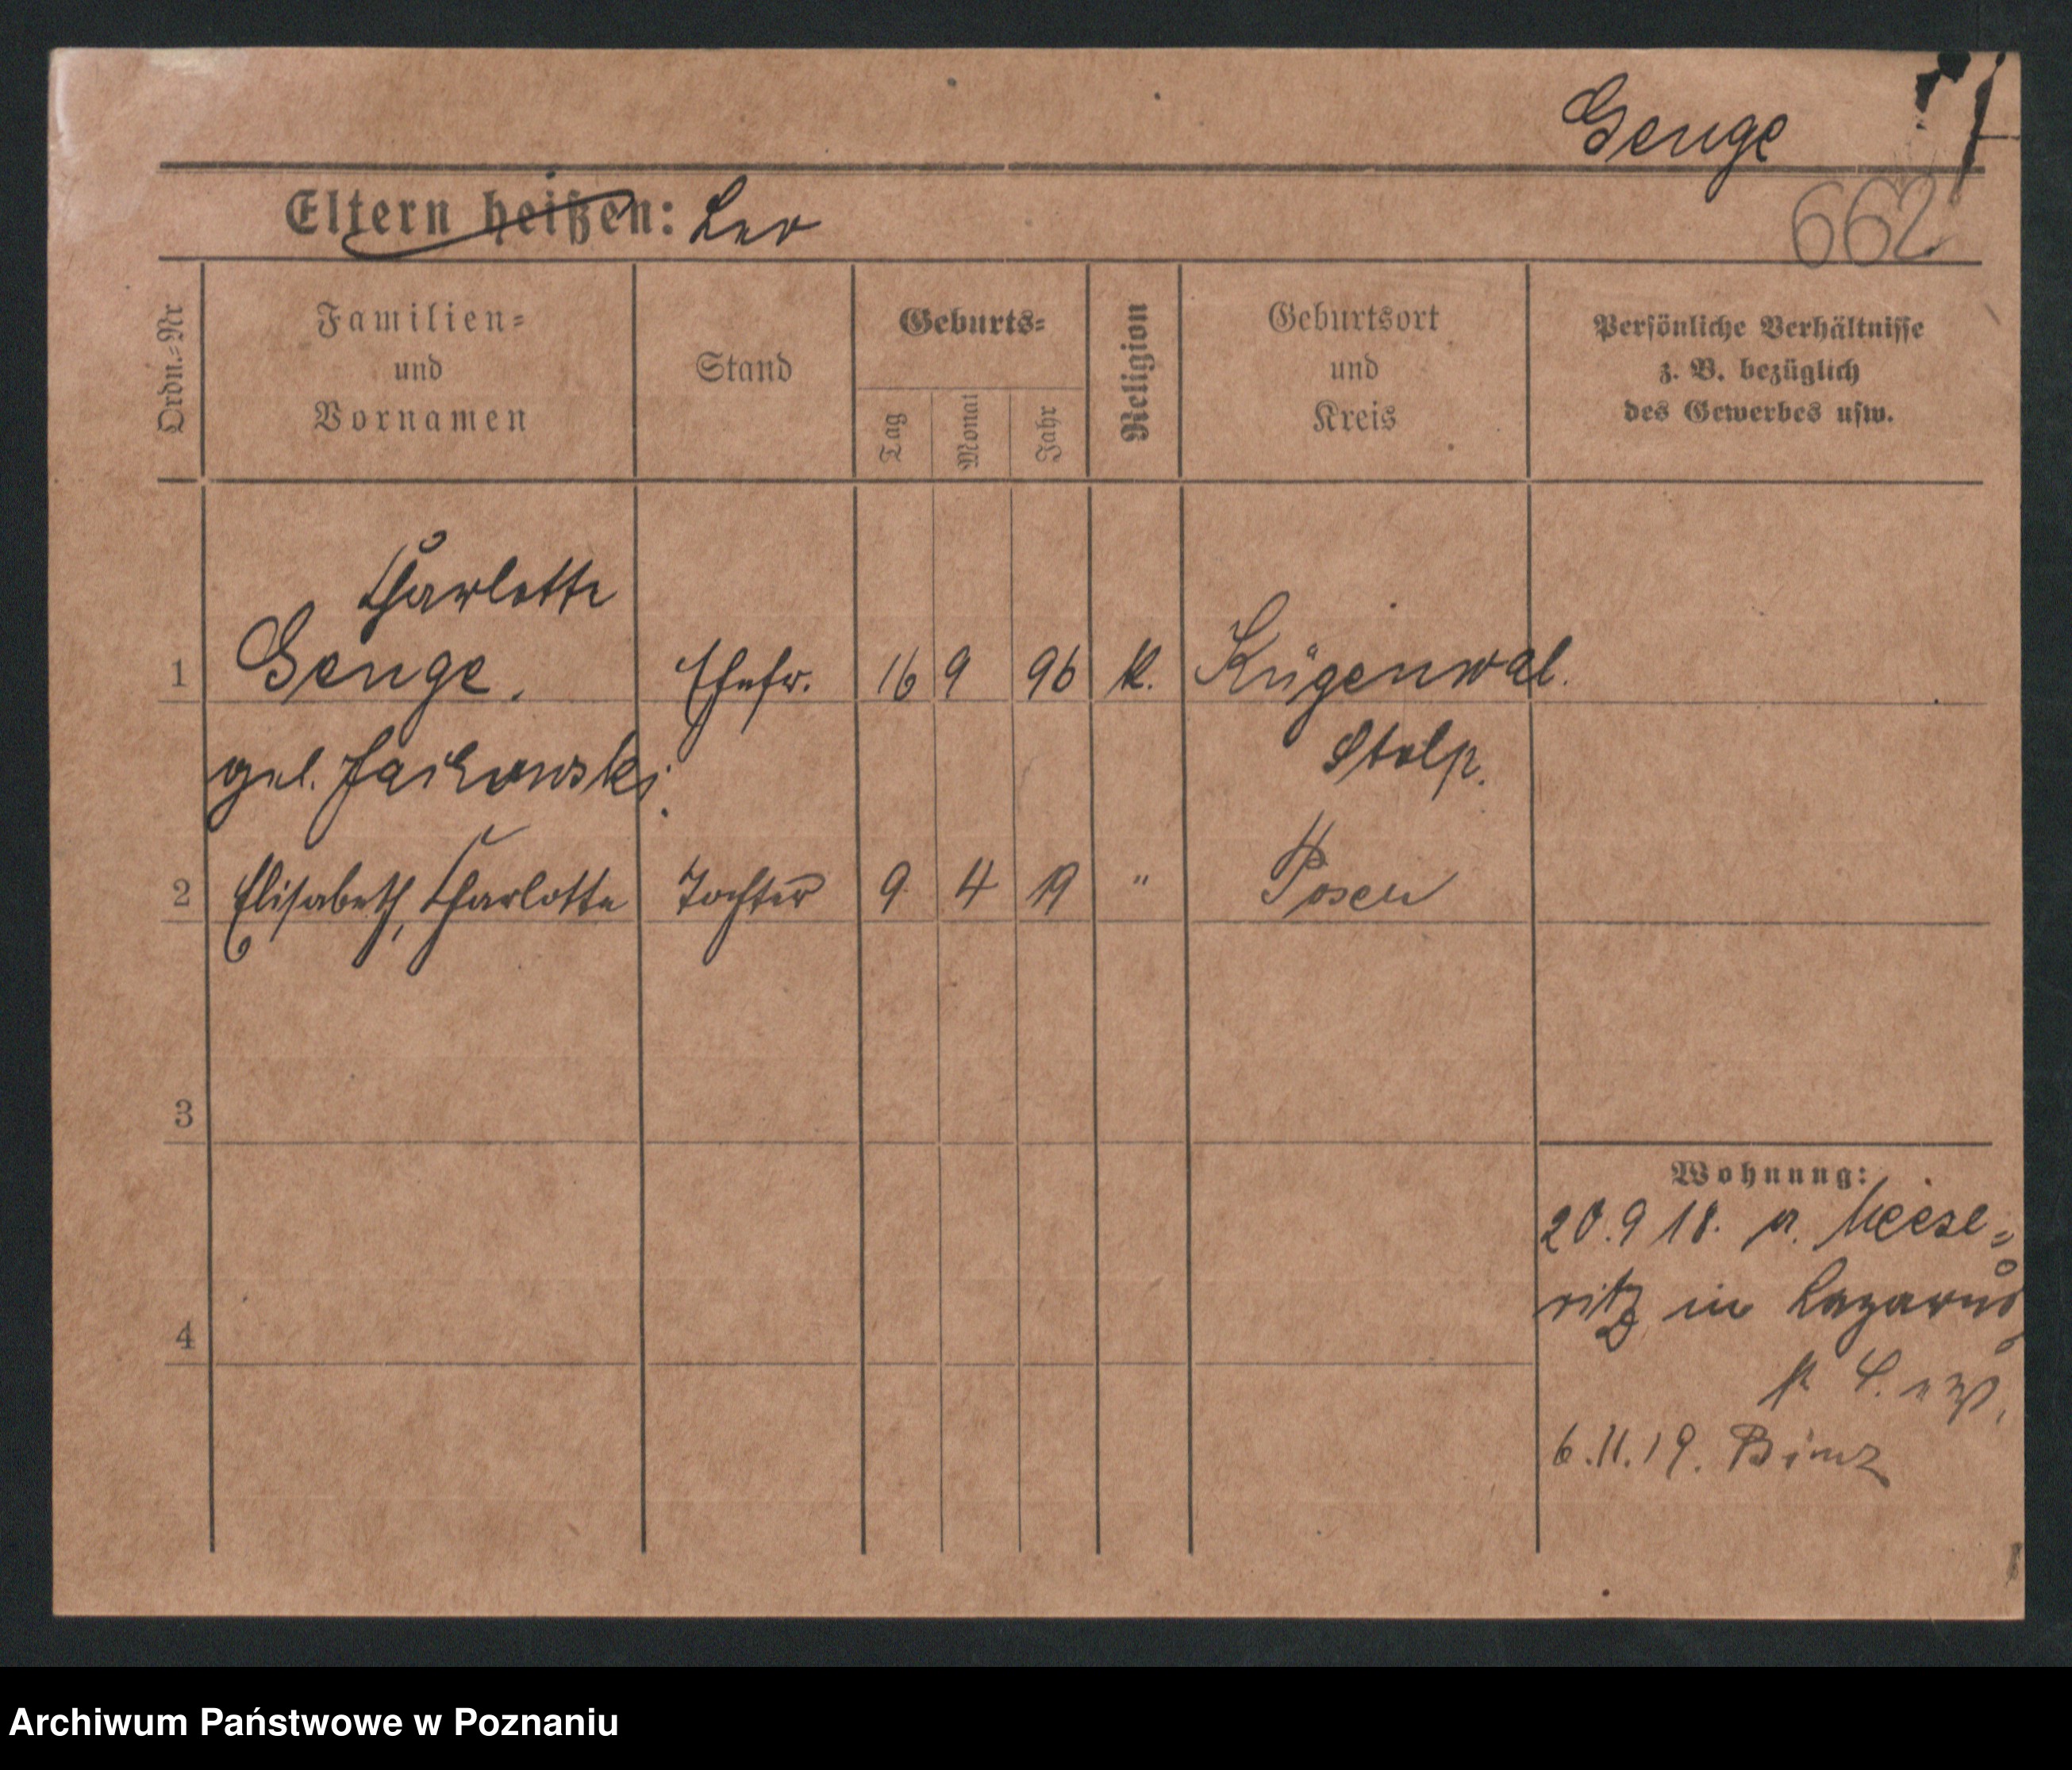 Genge
662
Eltern heißen: Leo
Ordn.=Nr
Familien=
und
Vornamen
Stand
Geburts=
Tag
Monat
Jahr
Religion
Geburtsort
und
Kreis
Persönliche Verhältnisse
z. B. bezüglich
des Gewerbes usw.
Charlotte
1 Genge. Ehefr. 16 9 96 k. Rügenwal.
geb. Stolp.
2 Elisabeth, Charlotte Tochter 9 4 19 " Posen
3
4
Wohnung:
20.9 18. a. Meese=
ritz in Lazarus
6.11.19. Binz
Archiwum Państwowe w Poznaniu